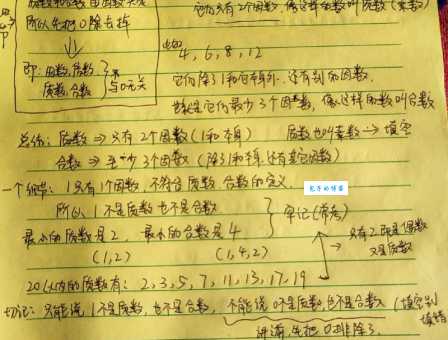 它们只有2个因数,像这样的数叫质数(素数)
所以先把0除去掉
比如 4,6,8,12
即:因数,倍数
质数,合数 } 与0无关
它们除了1和它本身外,还有别的因数,
也就是它们最少3个因数,像这样的数叫合数
总结:质数 ⇒ 只有2个因数(1和本身) 质数也叫素数 → 填空
合数 ⇒ 至少3个因数(除1和本身,还有其它因数)
一个细节:1只有1个因数,不符合质数,合数的定义,
所以1不是质数也不是合数
最小的质数是2, 最小的合数是4 } 牢记(常考)
(1,2) (1,4,2)
→ 只有2即是偶数
又是质数
20以内的质数有:2,3,5,7,11,13,17,19
切记:只能说1不是质数,也不是合数,不能说0不是质数,也不是合数
(填空别
填错
先把0排除了.